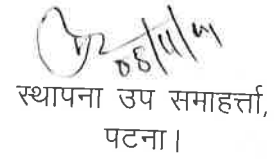 08/11/19
स्थापना उप समाहर्त्ता,
पटना।